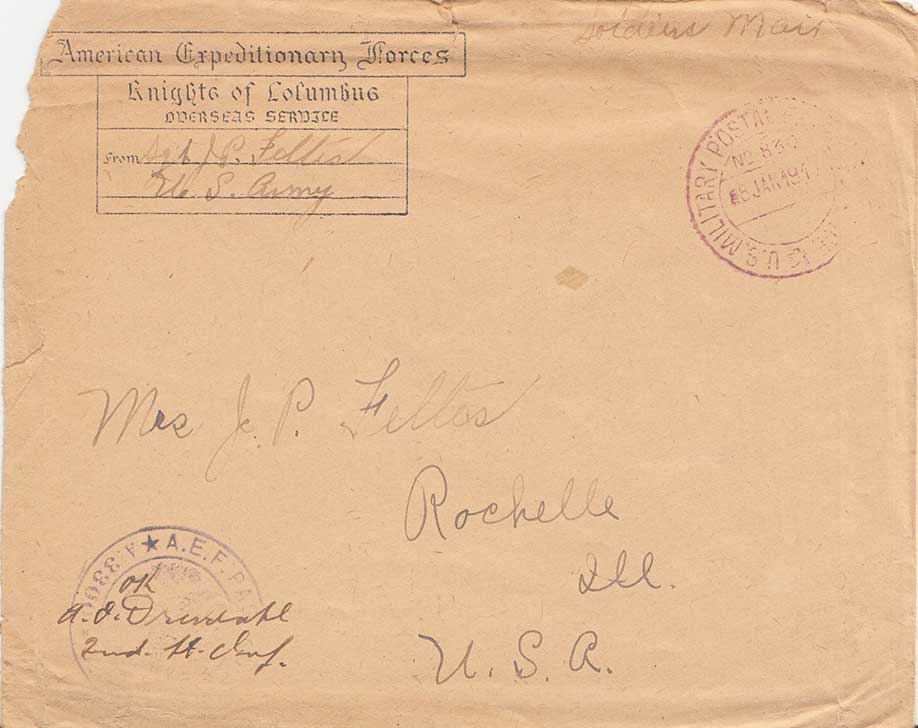 Soldiers Mail
American Expeditionary Forces
Knights of Columbus
OVERSEAS SERVICE
From Sgt J.P. Feltes
U. S. Army
U.S. MILITARY POSTAL
No. 830
JAN 191
Mrs J. P. Feltes
Rochelle
Ill.
U. S. A.
A.E.F. PAS
A.3300
OK
2nd. Lt. Inf.